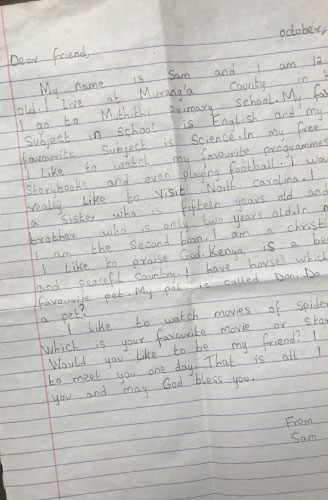 october,
Dear friend,
My name is Sam and I am 12
old. I live at Murang'a County in
I go to Muthithi Primary school. My fav
Subject in school is English and my
favourite Subject is Science. In my free
I Like to watch my favourite programmes
Storybooks and even playing football. I wou
really Like to visit North carolina. I
a Sister who is fifteen years old and
brother who is only two years old. In m
I am the Second born. I am a christi
I Like to praise God. Kenya is a be
and peacefl Country. I have horsel which
favourite pet. My pet is called Dani. Do
a pet?
I like to watch movies of Spider
Which is your favourite movie or stor
Would you like to be my friend? I
to meet you one day. That is all I
you and may God bless you.
From
Sam